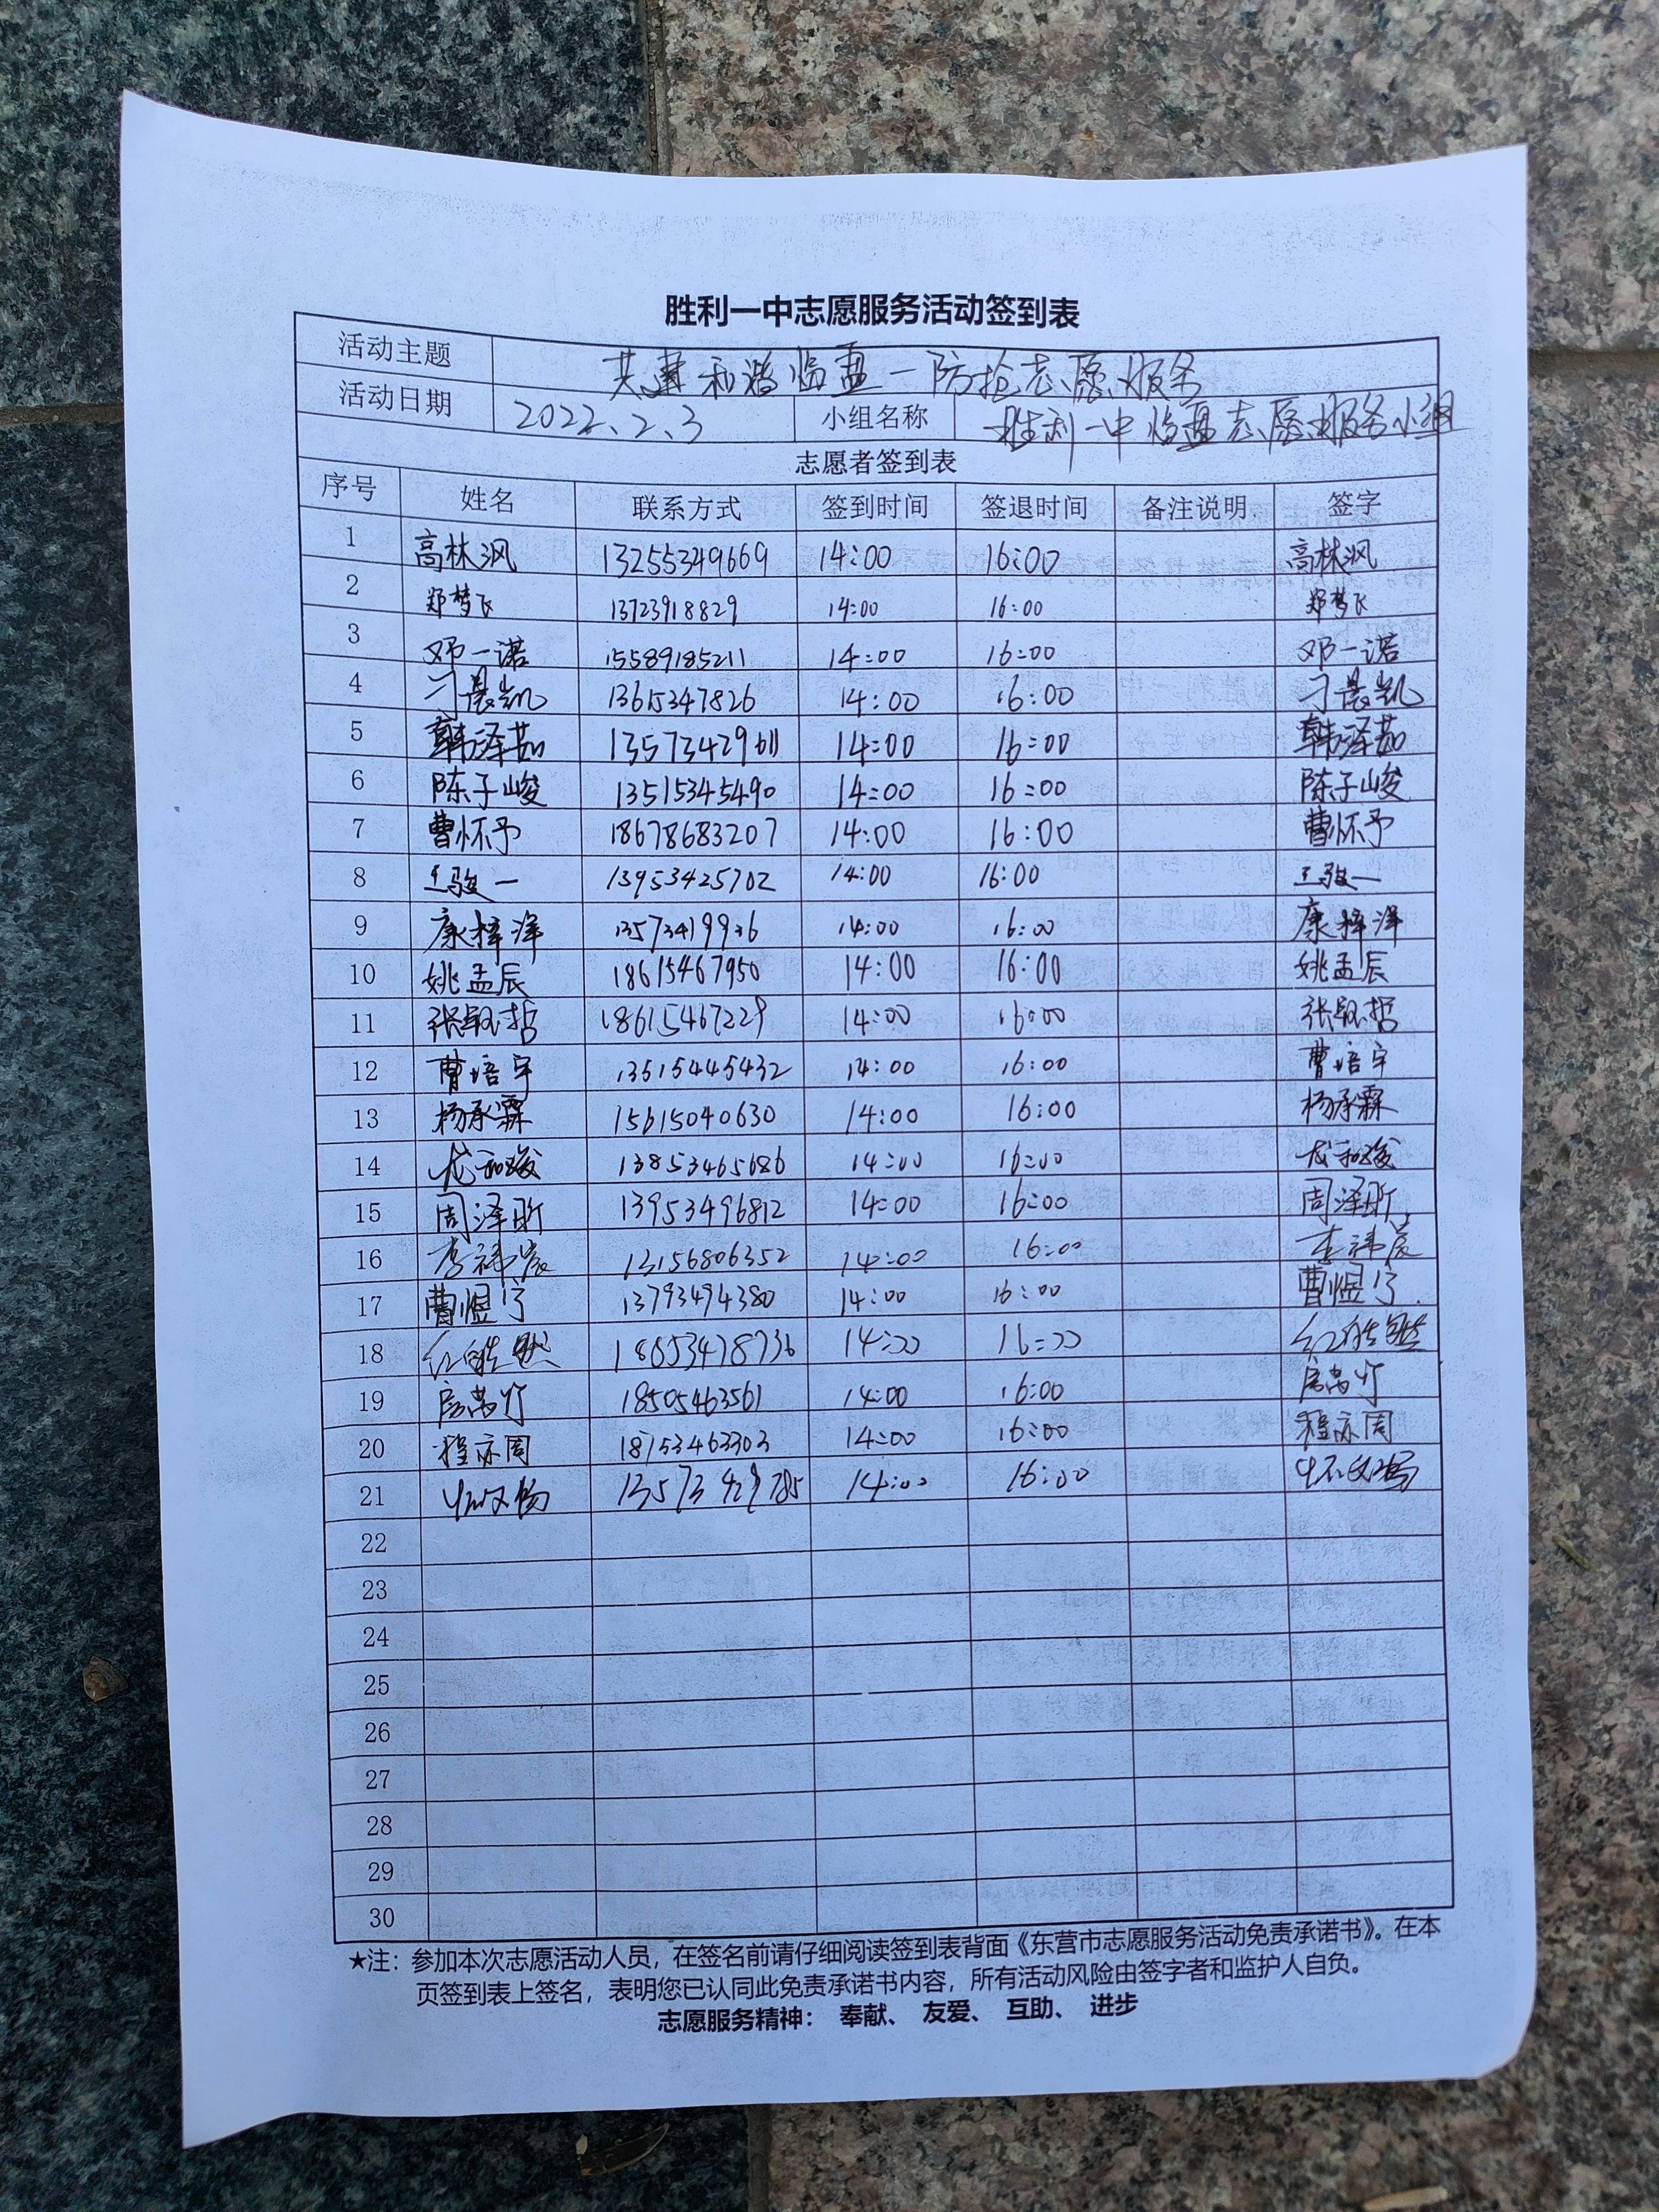 胜利一中志愿服务活动签到表
活动主题 共建和谐临盘一防抢志愿服务
活动日期 2022.2.3 小组名称 胜利一中临盘志愿服务小组
志愿者签到表
序号 姓名 联系方式 签到时间 签退时间 备注说明 签字
1 高林沨 13255349669 14:00 16:00 高林沨
2 郑梦飞 13723918829 14:00 16:00 郑梦飞
3 邓一诺 15589185211 14:00 16:00 邓一诺
4 刁晨凯 13615347826 14:00 16:00 刁晨凯
5 韩泽茹 13573429611 14:00 16:00 韩泽茹
6 陈子峻 13515345490 14:00 16:00 陈子峻
7 曹怀予 18678683207 14:00 16:00 曹怀予
8 王骏一 13953425702 14:00 16:00 王骏一
9 康梓洋 14:00 16:00 康梓洋
10 姚孟辰 18615467950 14:00 16:00 姚孟辰
11 18615467229 14:00 16:00
12 曹培宇 13515445432 14:00 16:00 曹培宇
13 杨承霖 15615040630 14:00 16:00 杨承霖
14 龙和骏 13853465686 14:00 16:00 龙和骏
15 周泽昕 13953496812 14:00 16:00 周泽昕
16 13156806352 14:00 16:00
17 曹煜宁 13793494380 14:00 16:00 曹煜宁
18 18653478736 14:00 16:00
19 18505463561 14:00 16:00
20 程亦周 18753463303 14:00 16:00 程亦周
21 14:00 16:00
22
23
24
25
26
27
28
29
30
★注：参加本次志愿活动人员，在签名前请仔细阅读签到表背面《东营市志愿服务活动免责承诺书》。在本
页签到表上签名，表明您已认同此免责承诺书内容，所有活动风险由签字者和监护人自负。
志愿服务精神： 奉献、 友爱、 互助、 进步